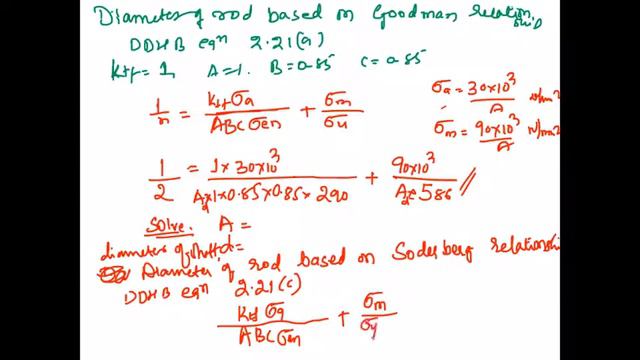 Diameter of rod based on Goodman relationship
DDHB eqn 2.21(a)
Ktf = 1, A=1. B=0.85 C=0.85
1/n = Ktf σa / ABC σen + σm / σu
σa = 30×10³ / A N/mm²
σm = 90×10³ / A N/mm²
1/2 = 1×30×10³ / A×1×0.85×0.85×290 + 90×10³ / A×586 //
Solve. A =
diameter of shaft d=
Diameter of rod based on Soderberg relationship
DDHB eqn 2.21(c)
Ktf σa / ABC σen + σm / σy